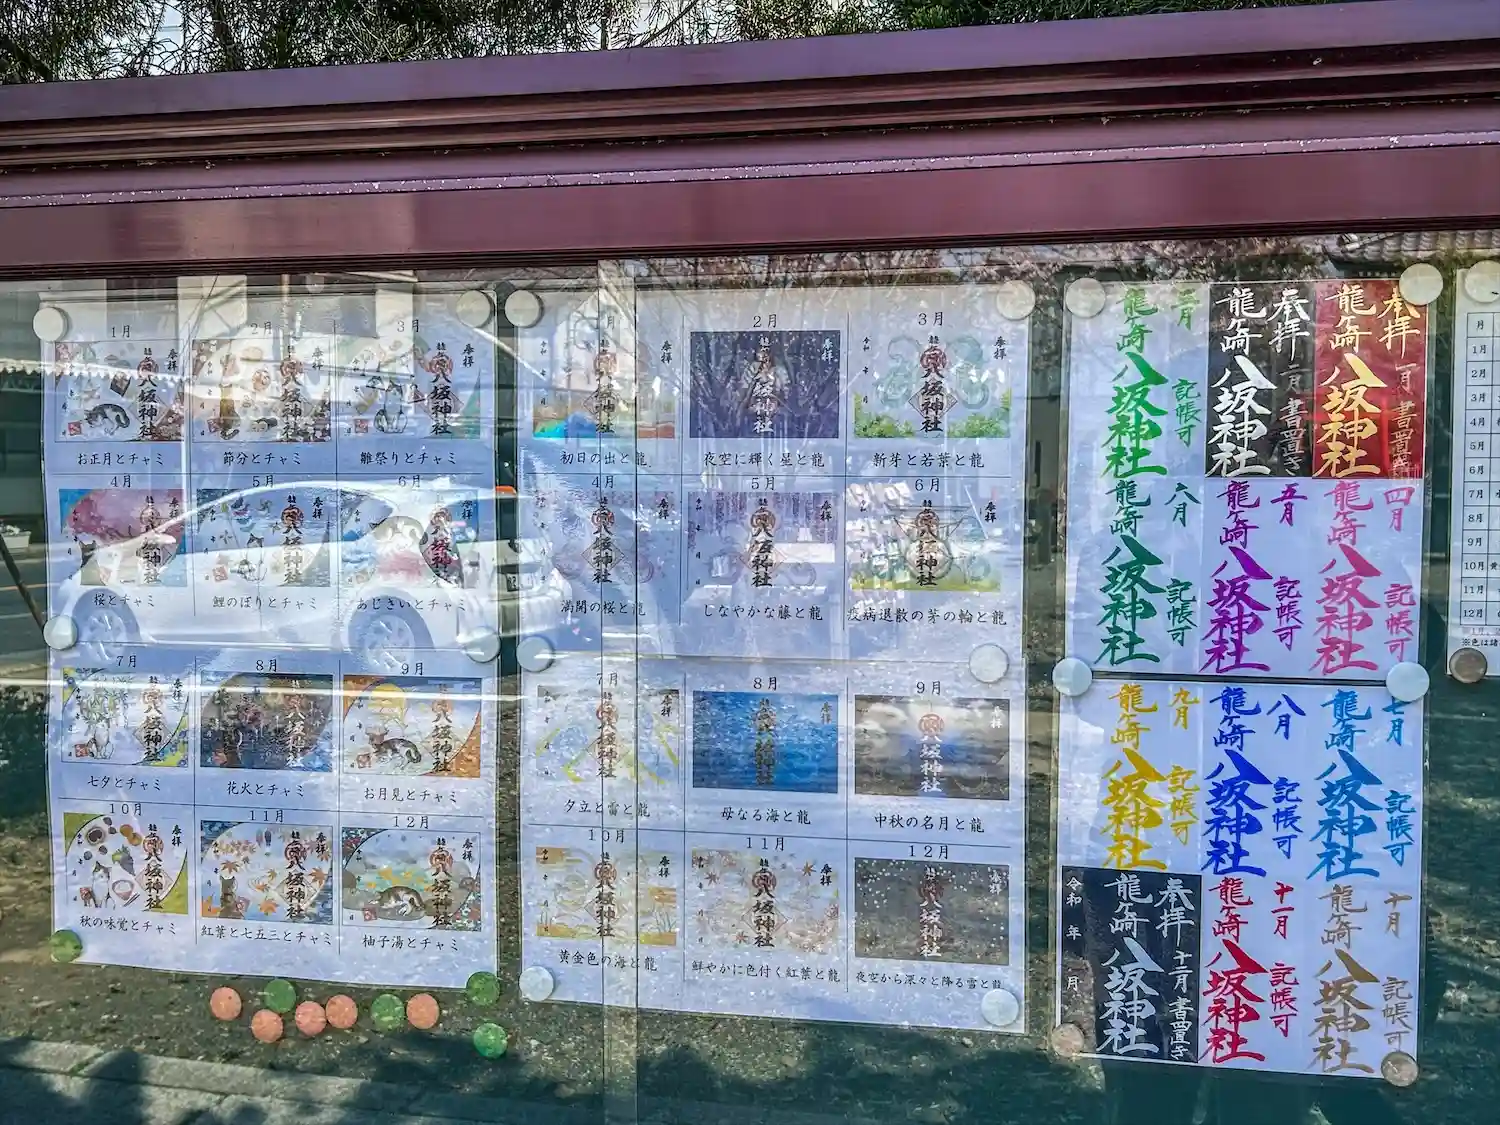 1月
2月
3月
奉拝
八坂神社
お正月とチャミ
節分とチャミ
雛祭りとチャミ
4月
5月
6月
奉拝
八坂神社
桜とチャミ
鯉のぼりとチャミ
あじさいとチャミ
7月
8月
9月
奉拝
八坂神社
七夕とチャミ
花火とチャミ
お月見とチャミ
10月
11月
12月
奉拝
八坂神社
秋の味覚とチャミ
紅葉と七五三とチャミ
柚子湯とチャミ
月
2月
3月
奉拝
八坂神社
初日の出と龍
夜空に輝く星と龍
新芽と若葉と龍
4月
5月
6月
奉拝
八坂神社
満開の桜と龍
しなやかな藤と龍
疫病退散の茅の輪と龍
7月
8月
9月
奉拝
八坂神社
夕立と雷と龍
母なる海と龍
中秋の名月と龍
10月
11月
12月
奉拝
八坂神社
黄金色の海と龍
鮮やかに色付く紅葉と龍
夜空から深々と降る雪と龍
奉拝 一月 書置き
龍ケ崎
八坂神社
奉拝 二月 書置き
龍ケ崎
八坂神社
三月 記帳可
龍ケ崎
八坂神社
四月 記帳可
龍ケ崎
八坂神社
五月 記帳可
龍ケ崎
八坂神社
六月 記帳可
龍ケ崎
八坂神社
七月 記帳可
龍ケ崎
八坂神社
八月 記帳可
龍ケ崎
八坂神社
九月 記帳可
龍ケ崎
八坂神社
十月 記帳可
龍ケ崎
八坂神社
十一月 記帳可
龍ケ崎
八坂神社
奉拝 十二月 書置き
龍ケ崎
八坂神社
令和 年 月
月
1月
2月
3月
4月
5月
6月
7月
8月
9月
10月 黄
11月
12月
※色は諸